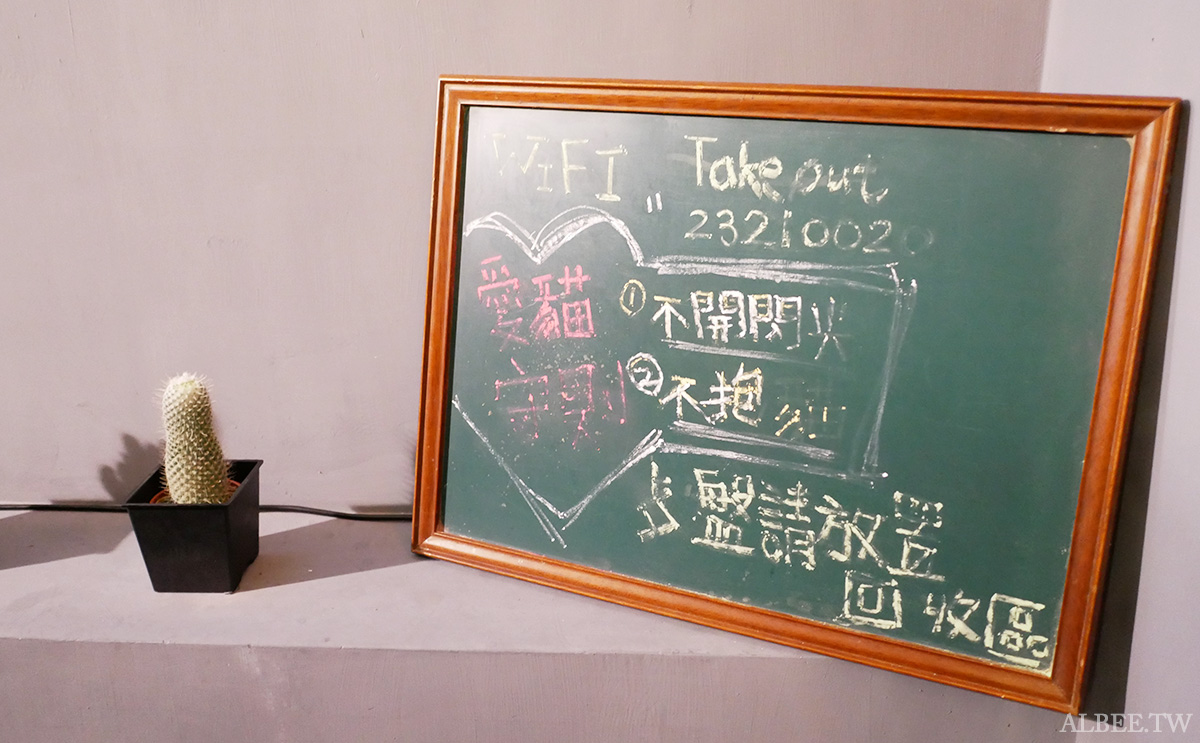 WIFI " Take out
23210020
愛貓
守則
① 不開閃光
② 不抱
盤請放置
回收區
ALBEE.TW